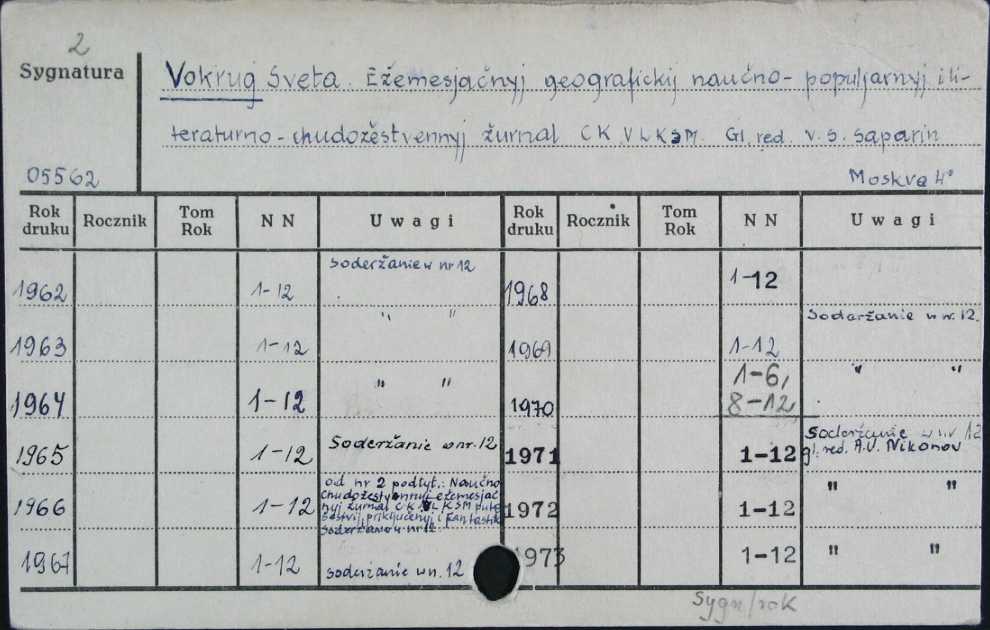 2
Sygnatura
Vokrug Sveta. Ežemesjačnyj geografickij naučno-populjarnyj i li-
teraturno-chudožestvennyj žurnal CK VLKSM. Gl. red. V. S. Saparin
05562
Moskva 4°
Rok druku Rocznik Tom Rok NN Uwagi Rok druku Rocznik Tom Rok NN Uwagi
1962 1-12 Soderžanie w nr 12 1968 1-12
1963 1-12 " " 1969 1-12 Soderžanie w nr. 12.
1964 1-12 " " 1970 1-6, 8-12 " "
1965 1-12 Soderžanie w nr. 12 1971 1-12 Soderžanie w nr 12
gl. red. A.V. Nikonov
1966 1-12 od nr 2 podtyt.: Naučno
chudožestvennyj ežemesjač
nyj žurnal CK VLKSM pute
šestvij, priključenij i fantastik
Soderžanie w nr 12
1972 1-12 " "
1967 1-12 Soderžanie w n. 12 1973 1-12 " "
Sygn/rok